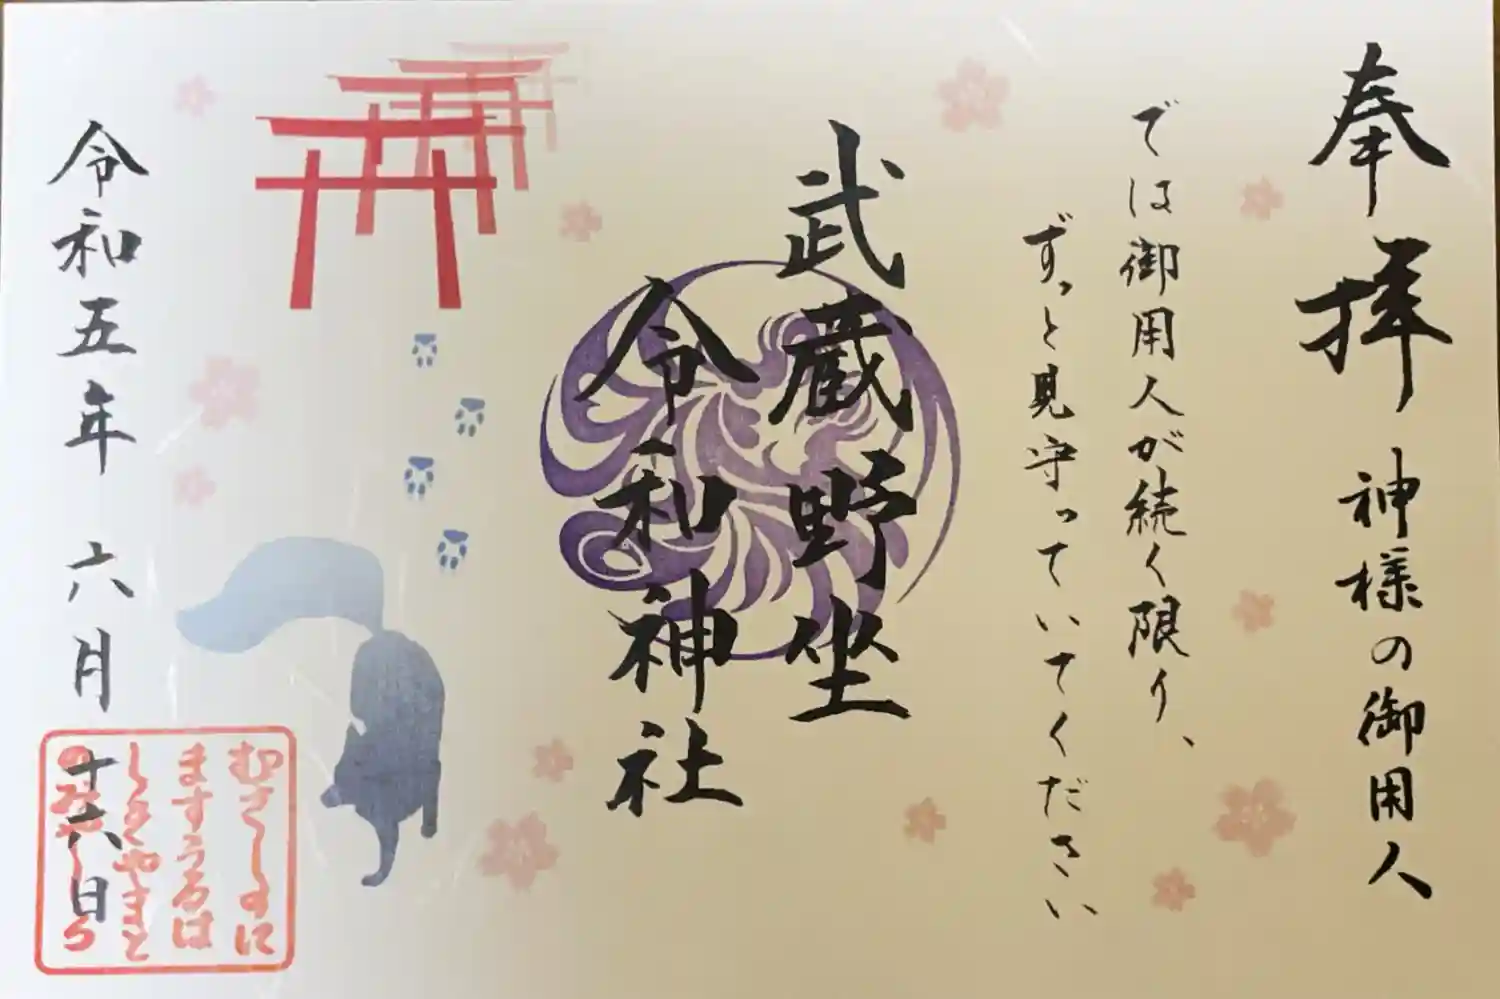 奉拝
神様の御用人
では御用人が続く限り、
ずっと見守っていてください
武蔵野坐
令和神社
令和五年 六月 十六日
むさしのに
ますうるは
しきやまと
のみやしろ